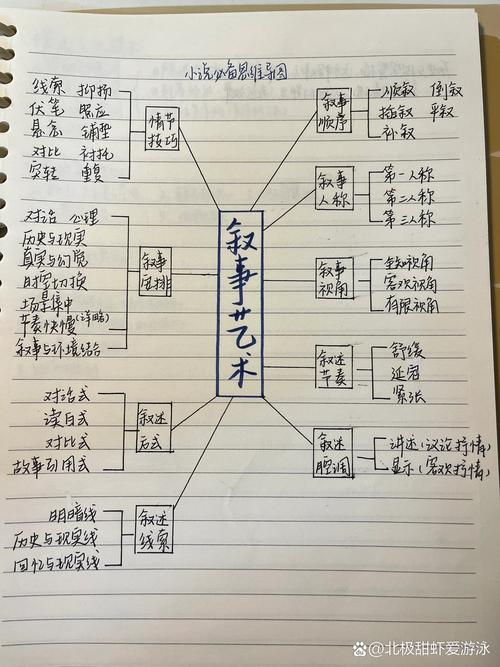 小说必备思维导图
叙事艺术
情节技巧
线索 抑扬
伏笔 照应
悬念 铺垫
对比 衬托
突转 重复
叙事安排
对话 心理
历史与现实
真实与幻觉
时空切换
场景集中
节奏快慢(详略)
叙事与环境结合
叙述方式
对话式
读白式
对比式
故事引用式
叙述线索
明暗线
历史与现实线
回忆与现实线
叙事顺序
顺叙 倒叙
插叙 平叙
补叙
叙事人称
第一人称
第二人称
第三人称
叙事视角
全知视角
客观视角
有限视角
叙述节奏
舒缓
延宕
紧张
叙述腔调
讲述(议论抒情)
显示(客观抒情)
百家号/北极甜虾爱游泳